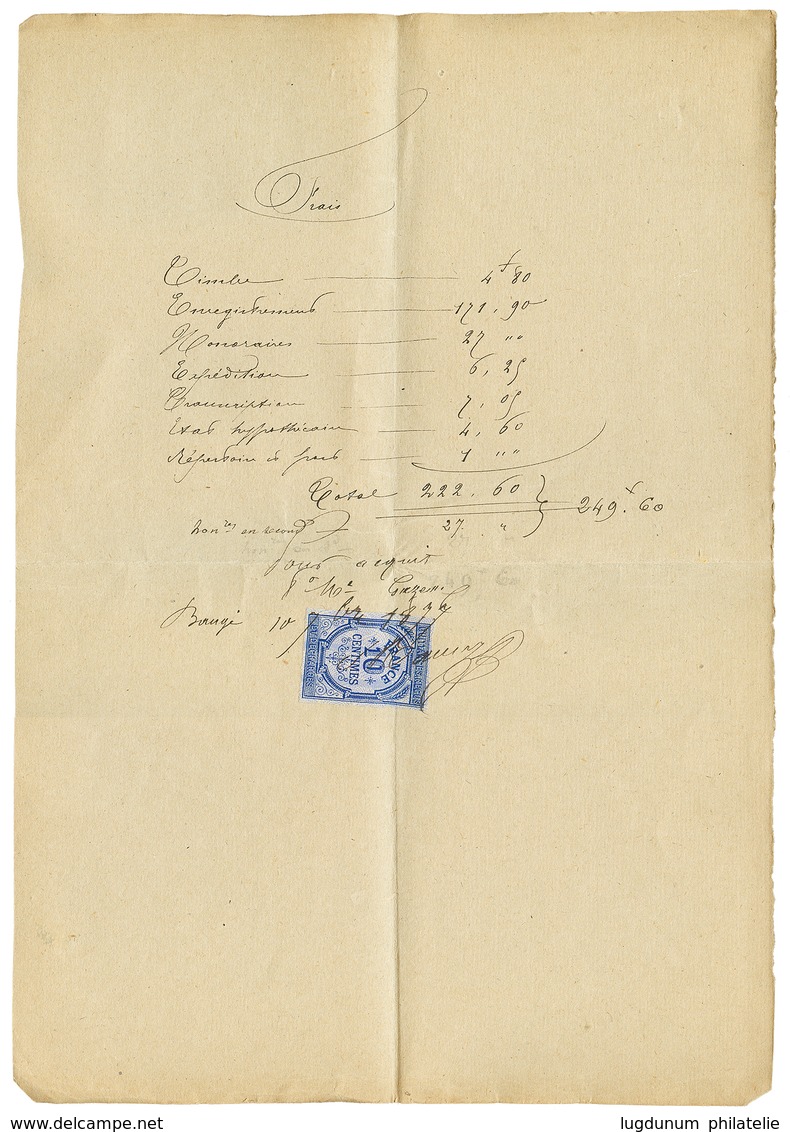 Frais
Timbre 4f 80
Enregistrement 171, 90
Honoraires 27 " "
Expédition 6, 25
Transcription 7, 05
Etat hypothécaire 4, 60
Répertoire et frais 1 " "
Total 222, 60
249f. 60
honres en second 27. "
Pour acquit
Baugé 10 1877
FRANCE
10
CENTIMES
www.delcampe.net
lugdunum philatelie